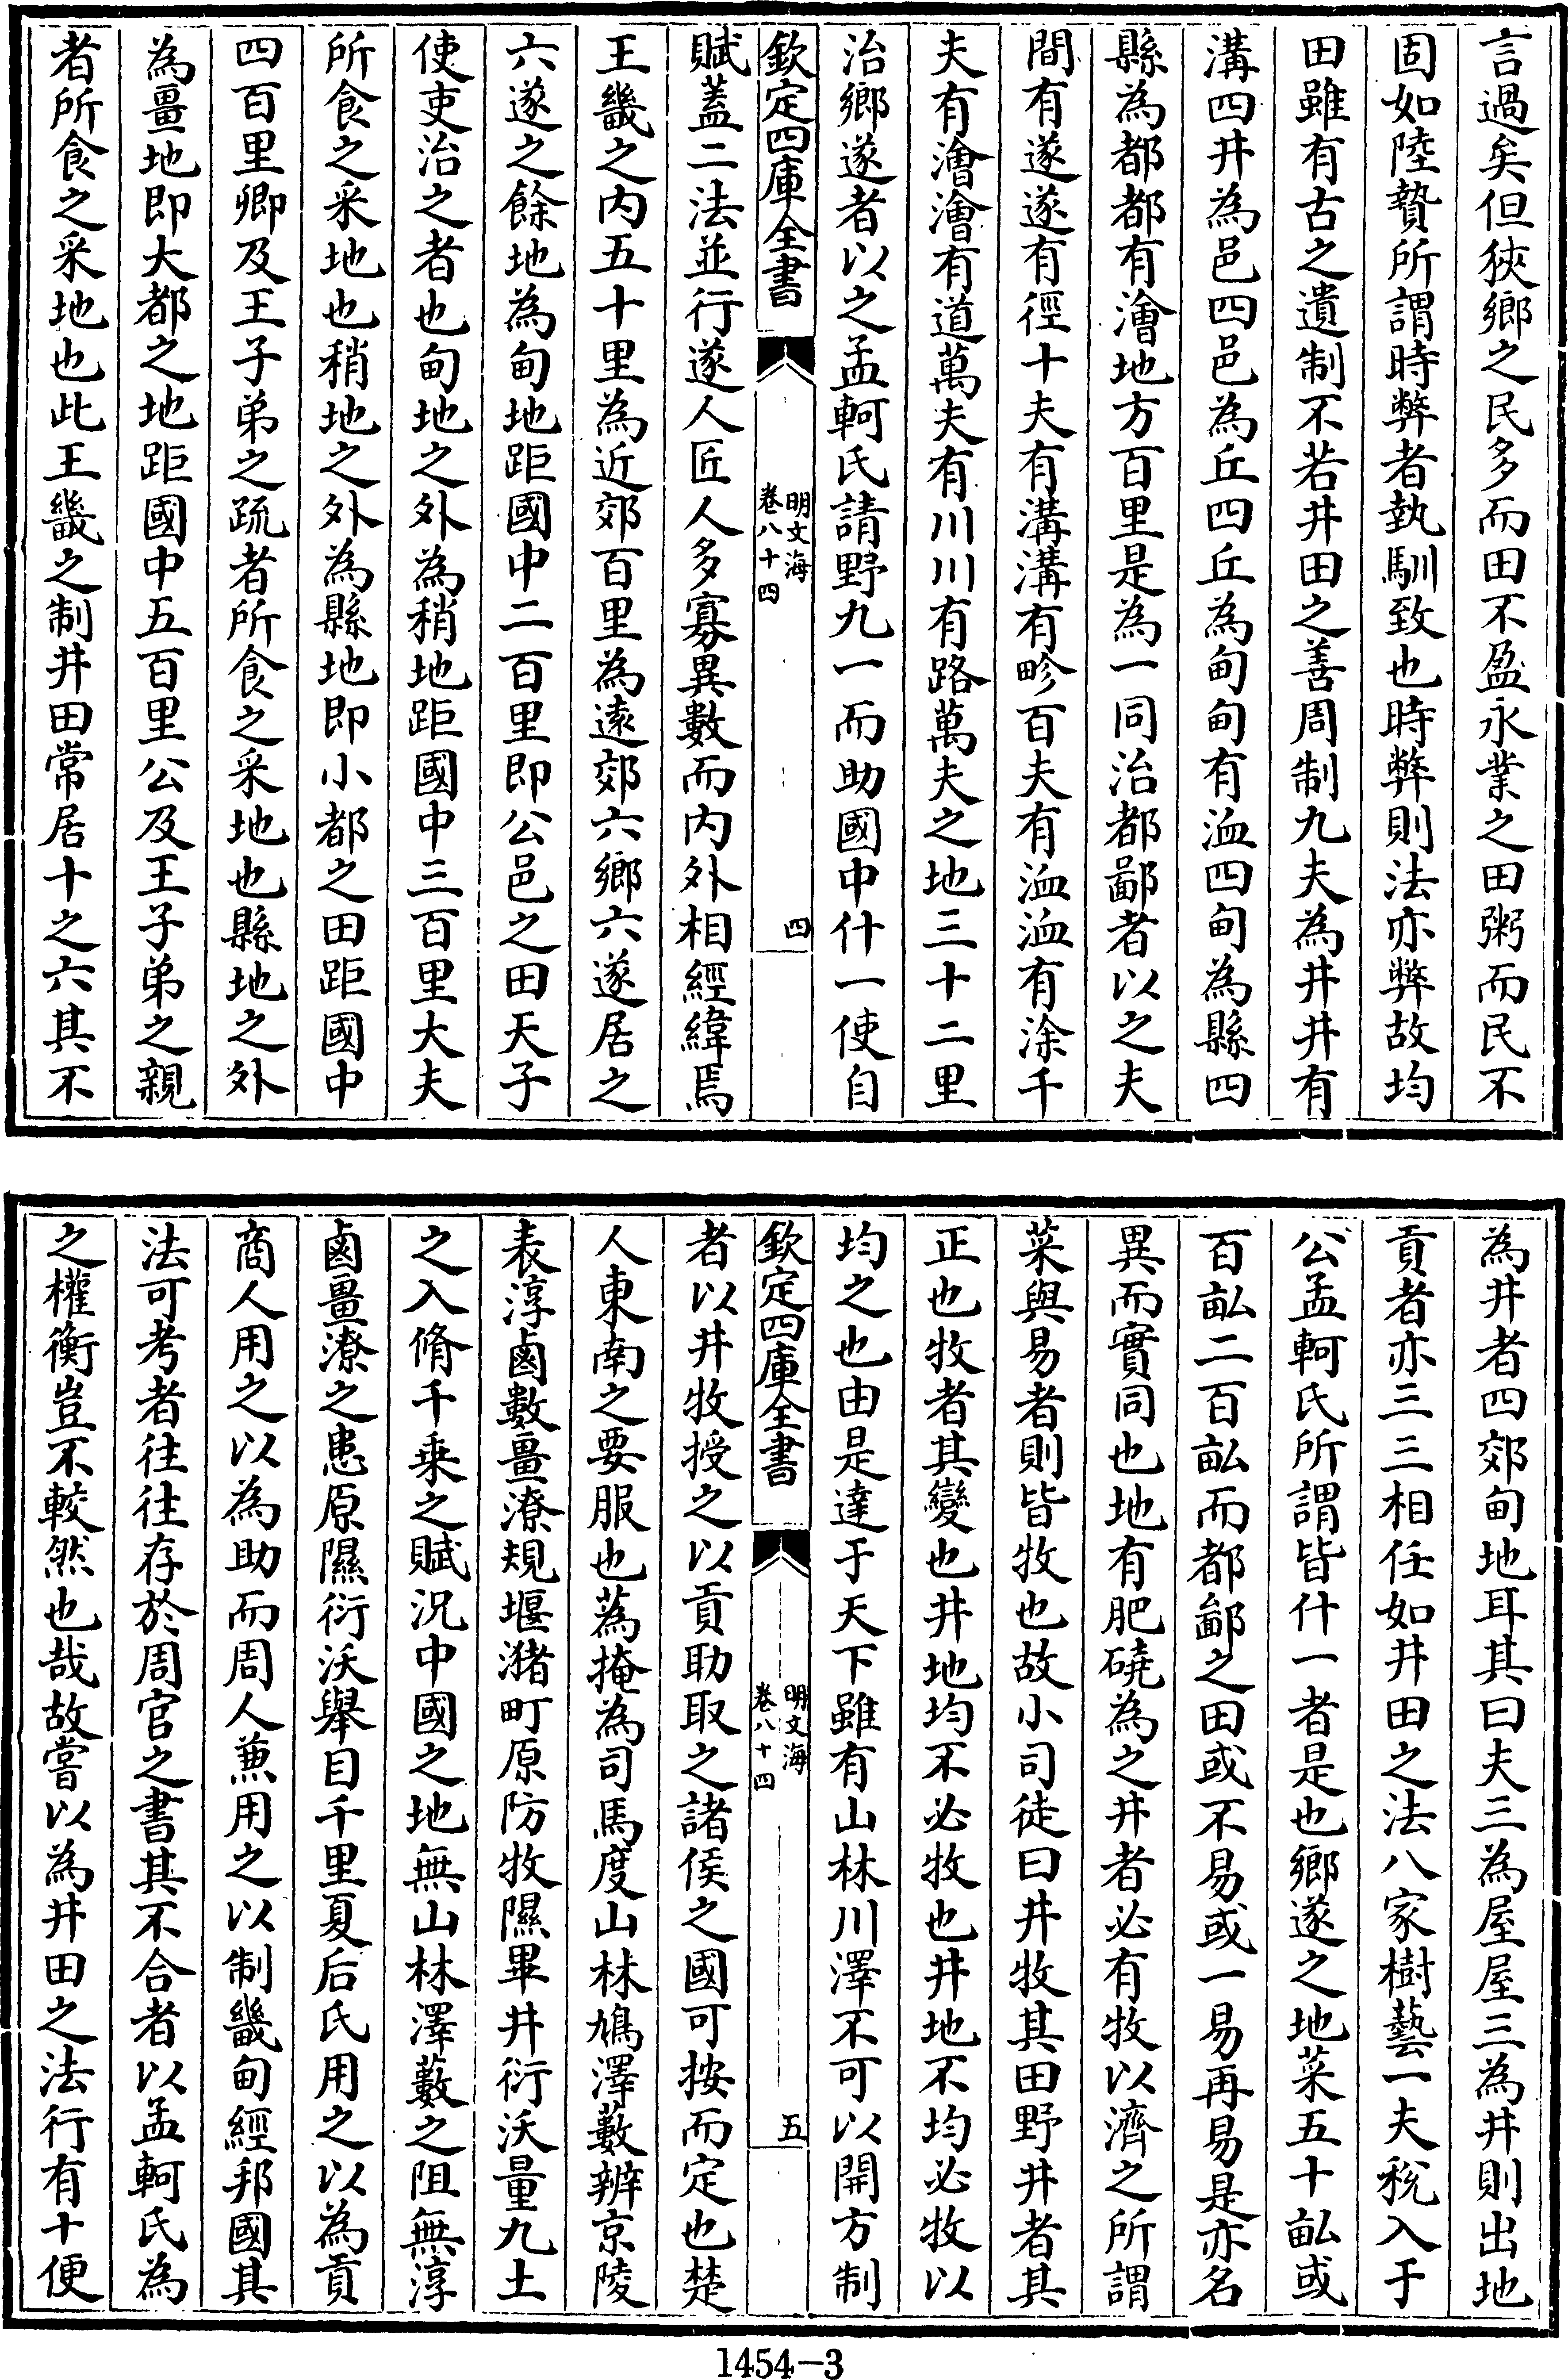 言過矣但狹鄉之民多而田不盈永業之田粥而民不
固如陸贄所謂時弊者執馴致也時弊則法亦弊故均
田雖有古之遺制不若井田之善周制九夫為井井有
溝四井為邑四邑為丘四丘為甸甸有洫四甸為縣四
縣為都都有澮地方百里是為一同治都鄙者以之夫
間有遂遂有徑十夫有溝溝有畛百夫有洫洫有涂千
夫有澮澮有道萬夫有川川有路萬夫之地三十二里
治鄉遂者以之孟軻氏請野九一而助國中什一使自
欽定四庫全書
明文海
卷八十四
四
賦蓋二法並行遂人匠人多寡異數而内外相經緯焉
王畿之内五十里為近郊百里為遠郊六鄉六遂居之
六遂之餘地為甸地距國中二百里即公邑之田天子
使吏治之者也甸地之外為稍地距國中三百里大夫
所食之采地也稍地之外為縣地即小都之田距國中
四百里卿及王子弟之疏者所食之采地也縣地之外
為畺地即大都之地距國中五百里公及王子弟之親
者所食之采地也此王畿之制井田常居十之六其不
為井者四郊甸地耳其曰夫三為屋屋三為井則出地
貢者亦三三相任如井田之法八家樹藝一夫稅入于
公孟軻氏所謂皆什一者是也鄉遂之地菜五十畝或
百畝二百畝而都鄙之田或不易或一易再易是亦名
異而實同也地有肥磽為之井者必有牧以濟之所謂
菜與易者則皆牧也故小司徒曰井牧其田野井者其
正也牧者其變也井地均不必牧也井地不均必牧以
均之也由是達于天下雖有山林川澤不可以開方制
欽定四庫全書
明文海
卷八十四
五
者以井牧授之以貢助取之諸侯之國可按而定也楚
人東南之要服也蒍掩為司馬度山林鳩澤藪辨京陵
表淳鹵數畺潦規堰瀦町原防牧隰畢井衍沃量九土
之入脩千乗之賦況中國之地無山林澤藪之阻無淳
鹵畺潦之患原隰衍沃舉目千里夏后氏用之以為貢
商人用之以為助而周人兼用之以制畿甸經邦國其
法可考者往往存於周官之書其不合者以孟軻氏為
之權衡豈不較然也哉故嘗以為井田之法行有十便
1454-3